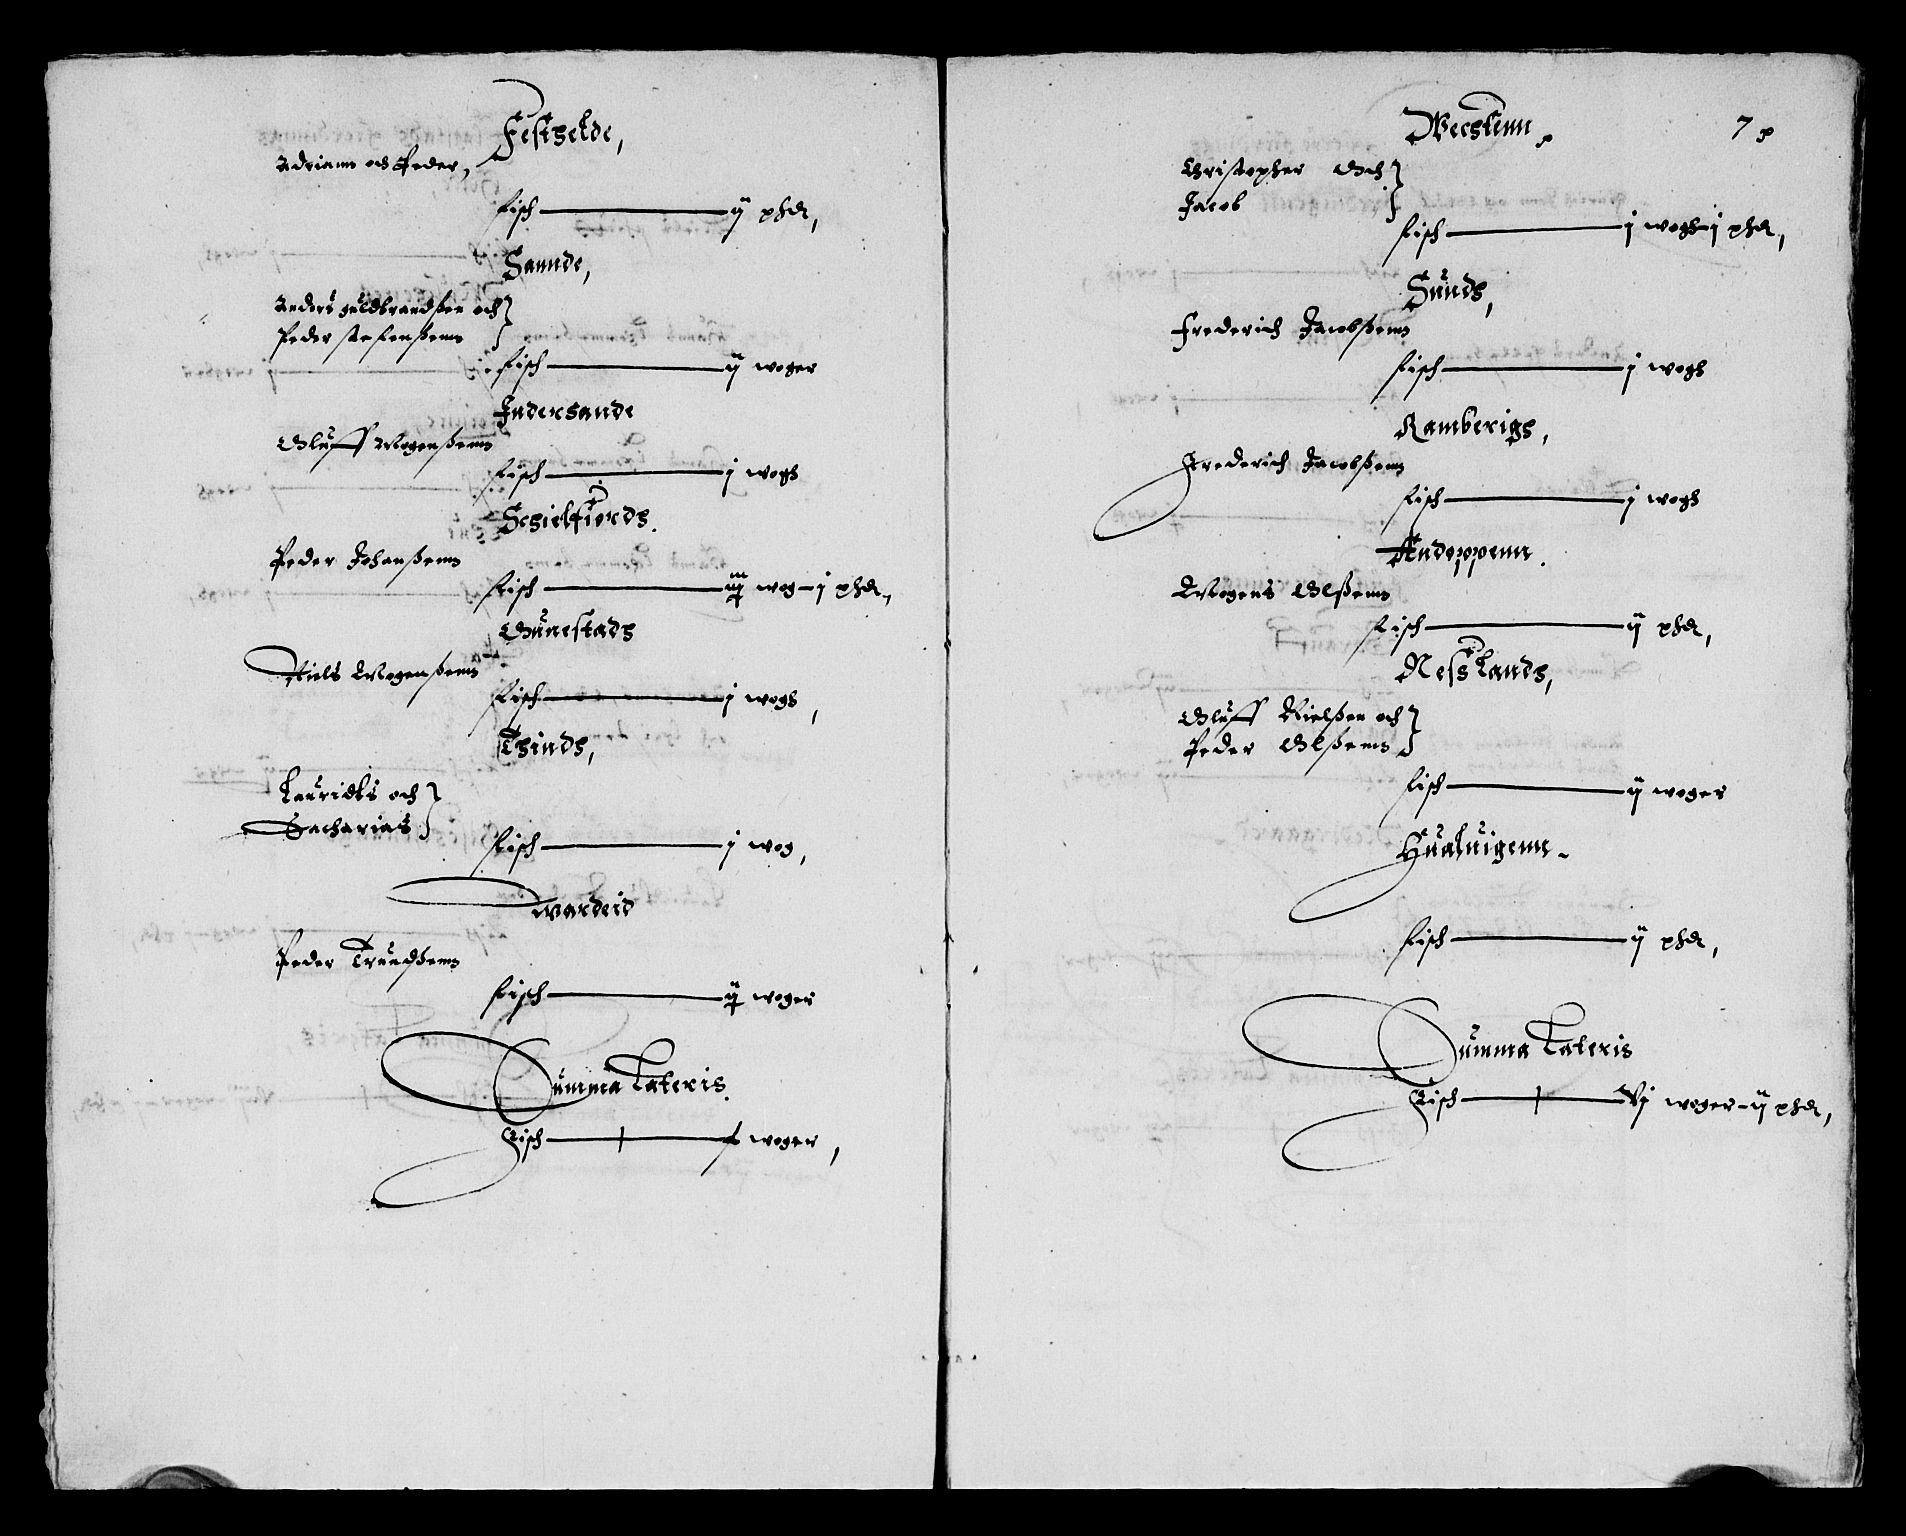 Festhelde,
Adriann och Peder,
Fisch — ij phd,
Sannde,
Anders guldbrandßen och
Peder stefenßenn
Fisch — ij woger
Indersande
Oluff Mogenßenn
Fisch — j wogh
Schielfiords.
Peder Johanßenn
Fisch — iij wog – j phd,
Gunestads
Niels Mogenßenn
Fisch — j wogh,
Thinds,
Lauridts och
Sacharias
Fisch — j wog,
Wardeid
Peder Trundßenn
Fisch — ij woger
Summa Lateris.
Fisch — woger,
7
Wechtenn,
Christopher Och
Jacob
Fisch — j wogh – j phd,
Sunds,
Frederich Jacobßenn
Fisch — j wogh
Ramberigs,
Frederich Jacobßenn
Fisch — j wogh
Andoppenn.
Mogens Olßenn
Fisch — ij phd,
Ness Lands,
Oluff Nielßen och
Peder Olßenn
Fisch — ij woger
Hualuigenn
Fisch — ij phd,
Summa Lateris
Fisch — vj woger – ij phd,